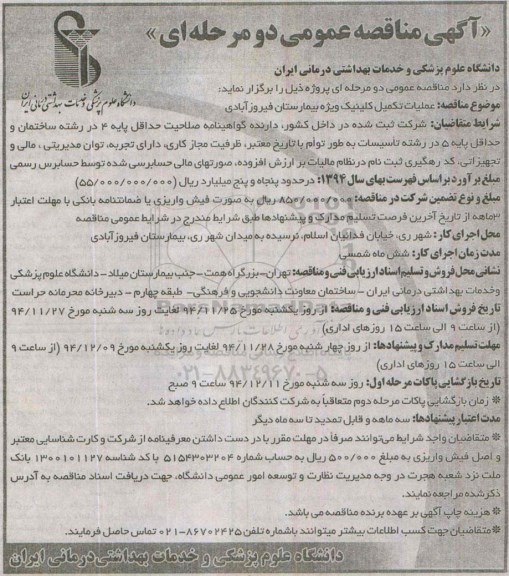 «آگهی مناقصه عمومی دو مرحله ای»
دانشگاه علوم پزشکی و خدمات بهداشتی درمانی ایران
دانشگاه علوم پزشکی و خدمات بهداشتی درمانی ایران
در نظر دارد مناقصه عمومی دو مرحله ای پروژه ذیل را برگزار نماید:
موضوع مناقصه: عملیات تکمیل کلینیک ویژه بیمارستان فیروزآبادی
شرایط متقاضیان: شرکت ثبت شده در داخل کشور، دارنده گواهینامه صلاحیت حداقل پایه ۴ در رشته ساختمان و
حداقل پایه ۵ در رشته تاسیسات به طور توام با تاریخ معتبر، ظرفیت مجاز کاری، دارای تجربه، توان مدیریتی، مالی و
تجهیزاتی، کد رهگیری ثبت نام در نظام مالیات بر ارزش افزوده، صورتهای مالی حسابرسی شده توسط حسابرس رسمی
مبلغ برآورد بر اساس فهرست بهای سال ۱۳۹۴: در حدود پنجاه و پنج میلیارد ریال (۵۵/۰۰۰/۰۰۰/۰۰۰)
مبلغ و نوع تضمین شرکت در مناقصه: ۸۵۰/۰۰۰/۰۰۰ ریال به صورت فیش واریزی یا ضمانتنامه بانکی با مهلت اعتبار
۳ماهه از تاریخ آخرین فرصت تسلیم مدارک و پیشنهادها طبق شرایط مندرج در شرایط عمومی مناقصه
محل اجرای کار: شهر ری، خیابان فدائیان اسلام، نرسیده به میدان شهر ری، بیمارستان فیروزآبادی
مدت زمان اجرای کار: شش ماه شمسی
نشانی محل فروش و تسلیم اسناد ارزیابی فنی و مناقصه: تهران- بزرگراه همت- جنب بیمارستان میلاد- دانشگاه علوم پزشکی
وخدمات بهداشتی درمانی ایران -ساختمان معاونت دانشجویی و فرهنگی- طبقه چهارم - دبیرخانه محرمانه حراست
تاریخ فروش اسناد ارزیابی فنی و مناقصه: از روز یکشنبه مورخ ۹۴/۱۱/۲۵ لغایت روز سه شنبه مورخ ۹۴/۱۱/۲۷
(از ساعت ۹ الی ساعت ۱۵ روزهای اداری)
مهلت تسلیم مدارک و پیشنهادها: از روز چهار شنبه مورخ ۹۴/۱۱/۲۸ لغایت روز یکشنبه مورخ ۹۴/۱۲/۰۹ (از ساعت ۹
الی ساعت ۱۵ روزهای اداری)
۰۲۱-۸۸۳۴۹۶۷۰-۵
تاریخ بازگشایی پاکات مرحله اول: روز سه شنبه مورخ ۹۴/۱۲/۱۱ ساعت ۹ صبح
* زمان بازگشایی پاکات مرحله دوم متعاقباً به شرکت کنندگان اطلاع داده خواهد شد.
مدت اعتبار پیشنهادها: سه ماهه و قابل تمدید تا سه ماه دیگر
* متقاضیان واجد شرایط می‌توانند صرفاً در مهلت مقرر با در دست داشتن معرفینامه از شرکت و کارت شناسایی معتبر
و اصل فیش واریزی به مبلغ ۵۰۰/۰۰۰ ریال به حساب شماره ۵۱۵۴۳۰۳۲۰۴ با کد شناسه ۱۳۰۰۱۰۱۱۲۷ بانک
ملت نزد شعبه هجرت در وجه مدیریت نظارت و توسعه امور عمومی دانشگاه، جهت دریافت اسناد مناقصه به آدرس
ذکر شده مراجعه نمایند.
* هزینه چاپ آگهی بر عهده برنده مناقصه می باشد.
* متقاضیان جهت کسب اطلاعات بیشتر میتوانند با شماره تلفن ۸۶۷۰۲۴۲۵-۰۲۱ تماس حاصل فرمایند.
دانشگاه علوم پزشکی و خدمات بهداشتی درمانی ایران